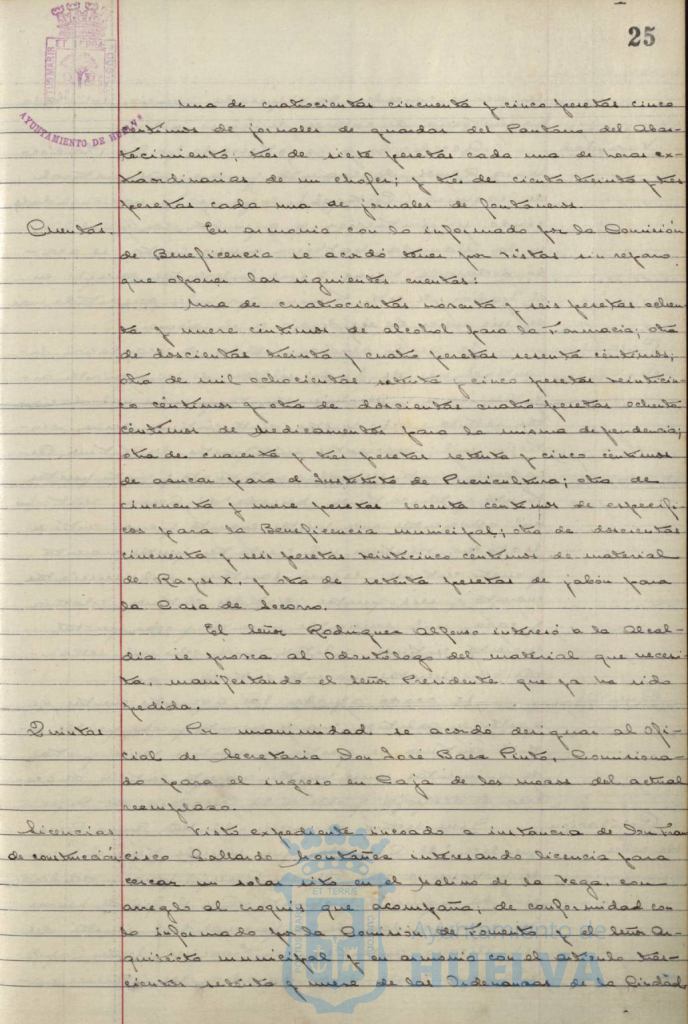 25
AYUNTAMIENTO DE HUELVA
Una de cuatrocientas cincuenta y cinco pesetas cinco
céntimos de jornales de guardas del Pantano del Abas-
tecimiento; tres de siete pesetas cada una de horas ex-
traordinarias de un chofer; y tres de ciento treinta y tres
pesetas cada una de jornales de fontaneros.
Cuentas. En armonia con lo informado por la Comisión
de Beneficencia se acordó tener por vistas sin reparo
que oponer las siguientes cuentas:
Una de cuatrocientas noventa y seis pesetas ochen-
ta y nueve céntimos de alcohol para la Farmacia; otra
de doscientas treinta y cuatro pesetas sesenta céntimos;
otra de mil ochocientas setenta y cinco pesetas veinticin-
co céntimos y otra de doscientas cuatro pesetas ochenta
céntimos de medicamentos para la misma dependencia;
otra de cuarenta y tres pesetas setenta y cinco céntimos
de azucar para el Instituto de Puericultura; otra de
cincuenta y nueve pesetas sesenta céntimos de especifi-
cos para la Beneficencia municipal; otra de doscientas
cincuenta y seis pesetas veinticinco céntimos de material
de Rayos X, y otra de setenta pesetas de jabón para
la Casa de Socorro.
El Señor Rodriguez Alfonso interesó a la Alcal-
dia se provea al Odontólogo del material que necesi-
ta, manifestando el Señor Presidente que ya ha sido
pedida.
Quintas Por unanimidad se acordó designar al Ofi-
cial de Secretaria Don José Baez Pinto, Comisiona-
do para el ingreso en Caja de los mozos del actual
reemplazo.
Licencias Visto expediente incoado a instancia de Don Fran-
de construcción cisco Gallardo Montañez interesando licencia para
cercar un solar sito en el Molino de la Vega, con
arreglo al croquis que acompaña, de conformidad con
lo informado por la Comisión de Fomento y el Señor Ar-
quitecto municipal y en armonia con el articulo tres-
cientos setenta y nueve de las Ordenanzas de la Ciudad
Ayuntamiento de
HUELVA